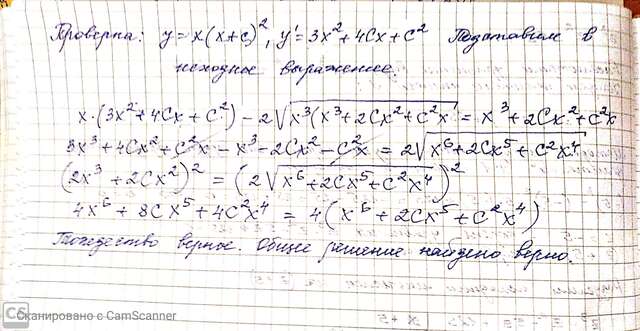 Проверка: y = x(x+c)², y' = 3x² + 4Cx + C² Подставим в
исходное выражение.
x·(3x² + 4Cx + C²) - 2√x³(x³ + 2Cx² + C²x) = x³ + 2Cx² + C²x
3x³ + 4Cx² + C²x - x³ - 2Cx² - C²x = 2√x⁶ + 2Cx⁵ + C²x⁴
(2x³ + 2Cx²)² = (2√x⁶ + 2Cx⁵ + C²x⁴)²
4x⁶ + 8Cx⁵ + 4C²x⁴ = 4(x⁶ + 2Cx⁵ + C²x⁴)
Тождество верное. Общее решение найдено верно.
CS Сканировано с CamScanner